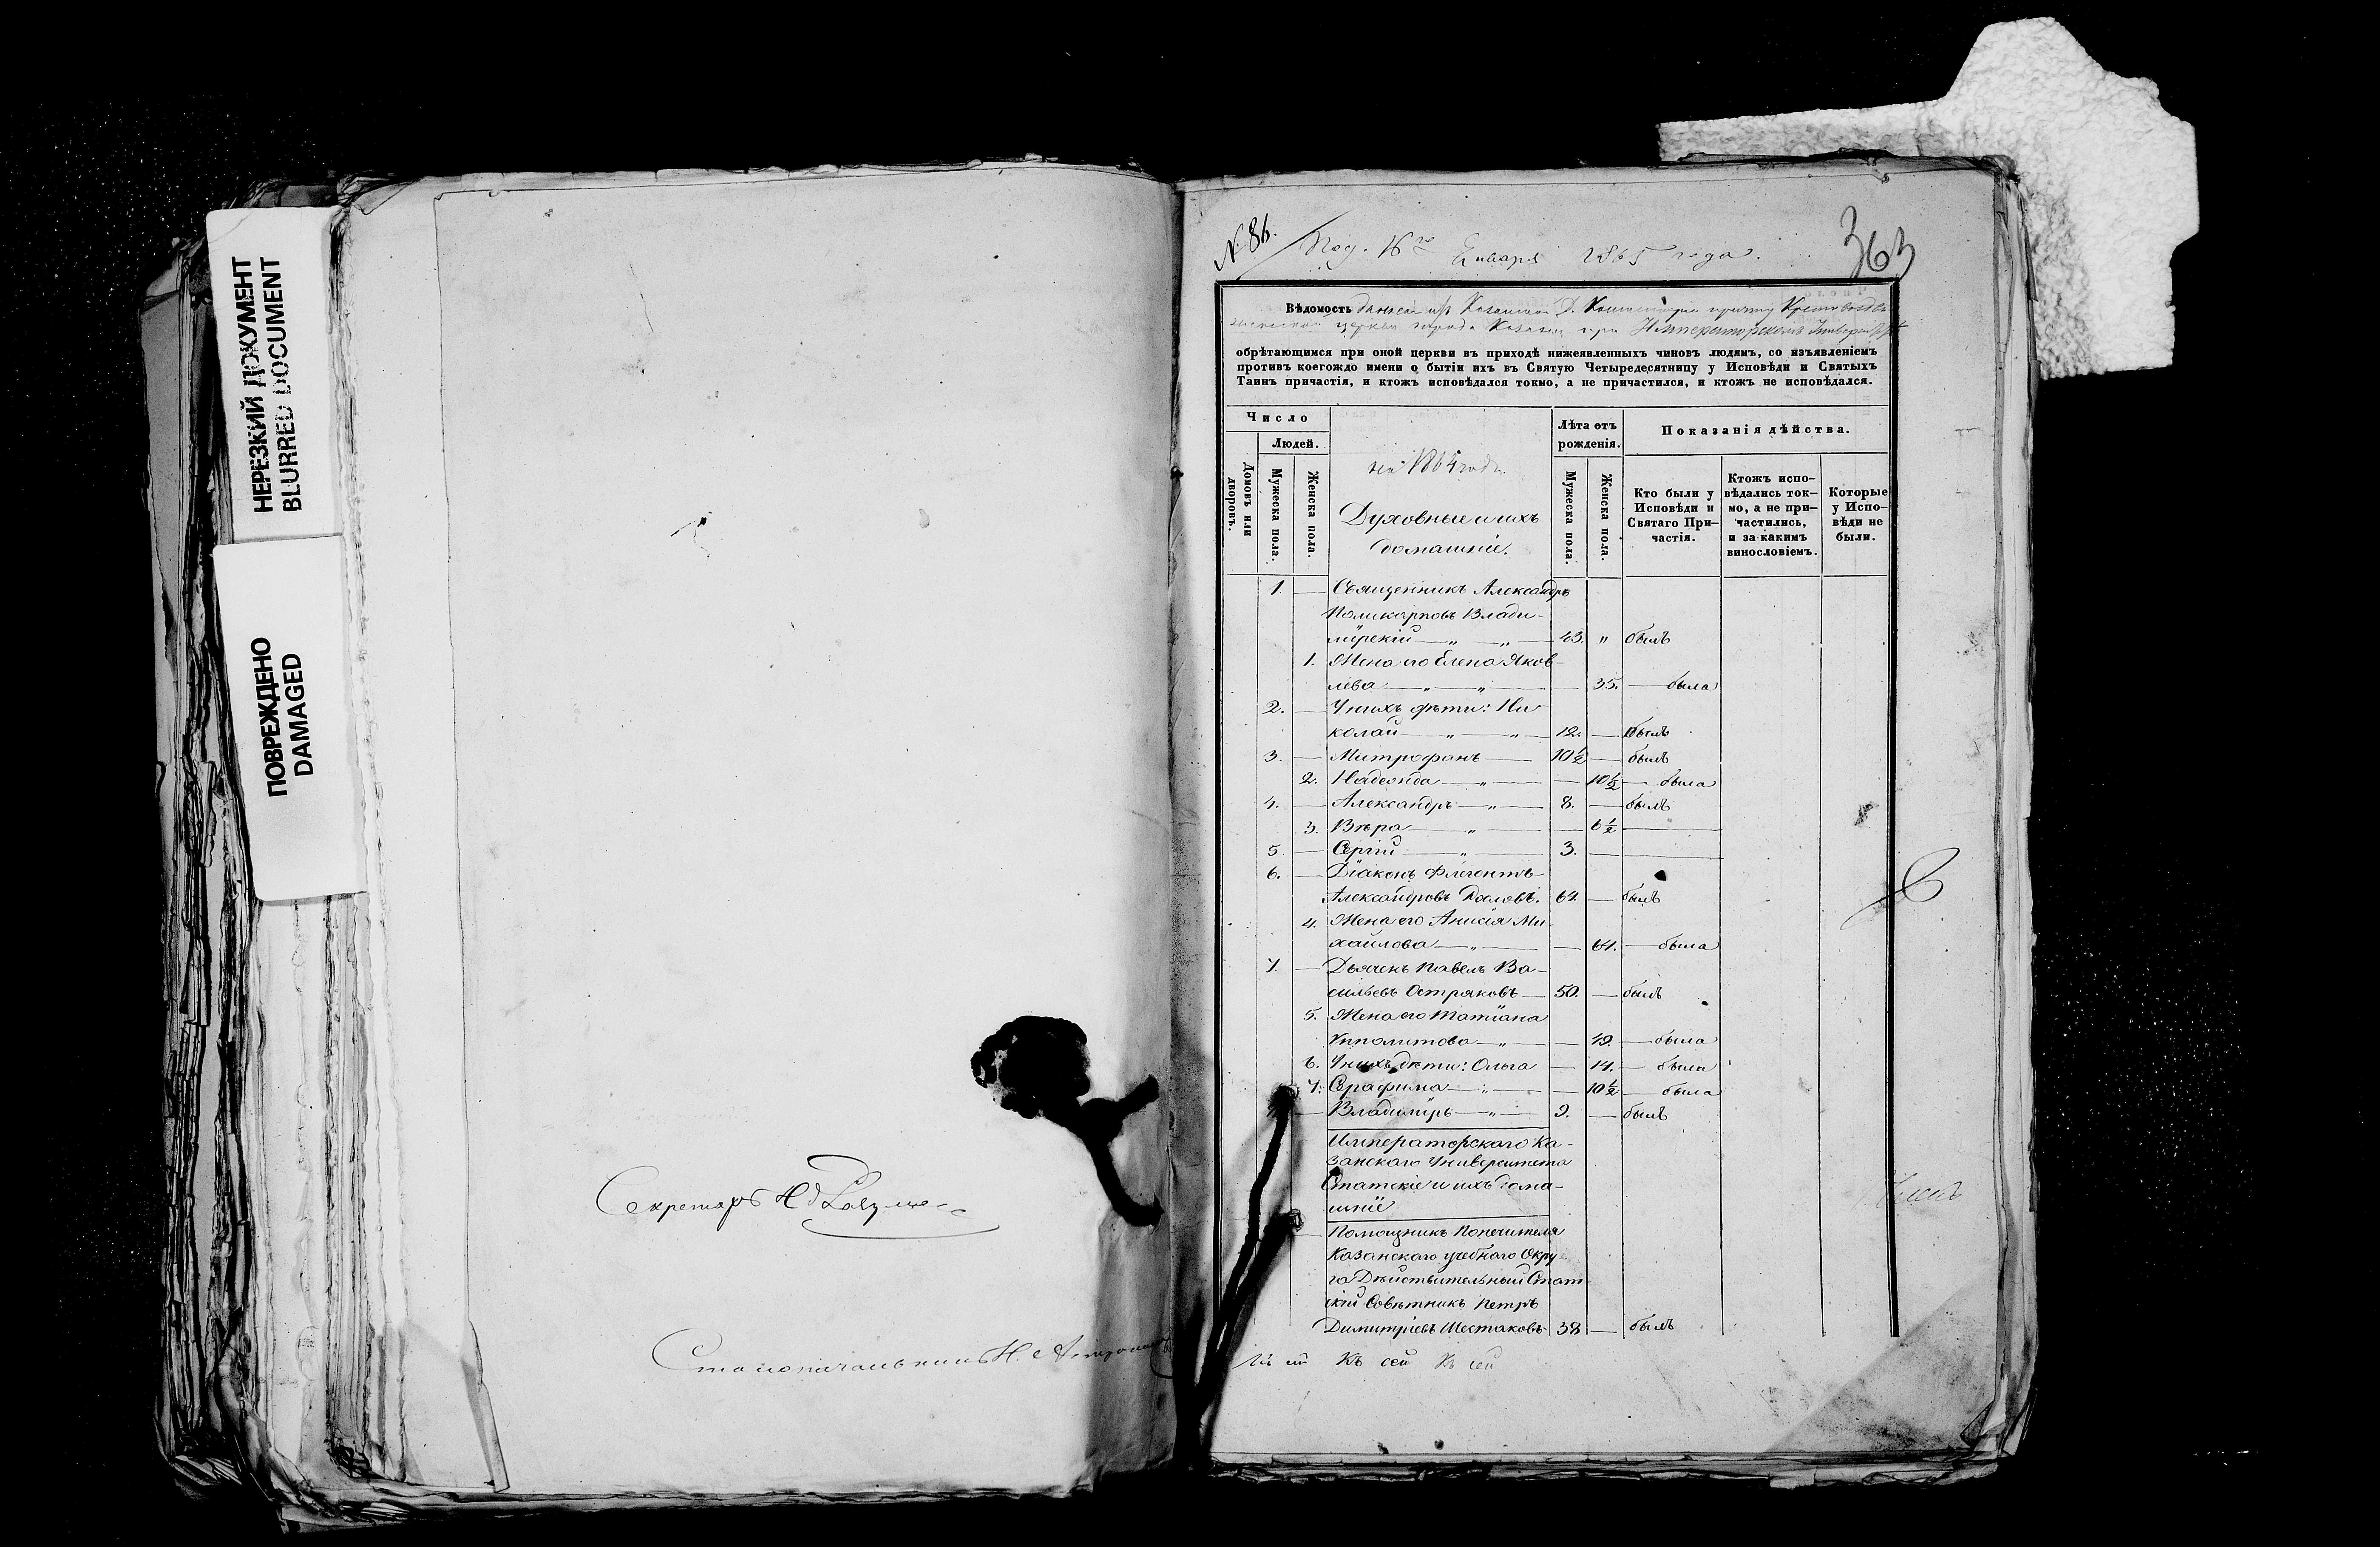 НЕРЕЗКИЙ ДОКУМЕНТ
BLURRED DOCUMENT
ПОВРЕЖДЕНО
DAMAGED
Секретарь
Столоначальникъ Н.
№ 86.
Под. 16го Января 1865 года.
363
Вѣдомость данная изъ Казанской Д. Консисторіи причту Крестовоздви-
женской церкви города Казани при Императорскомъ Университетѣ
обрѣтающимся при оной церкви въ приходѣ нижеявленныхъ чиновъ людямъ, со изъявленіемъ
противъ коегождо имени о бытіи ихъ въ Святую Четыредесятницу у Исповѣди и Святыхъ
Таинъ причастія, и ктожъ исповѣдался токмо, а не причастился, и ктожъ не исповѣдался.
Число
Людей.
Домовъ или дворовъ.
Мужеска пола.
Женска пола.
на 1864 годъ.
Духовные и ихъ
домашніе.
Лѣта отъ рожденія.
Мужеска пола.
Женска пола.
Показанія дѣйства.
Кто были у Исповѣди и Святаго При-частія.
Ктожъ испо-вѣдались ток-мо, а не при-частились, и за какимъ винословіемъ.
Которые у Испо-вѣди не были.
1. — Священникъ Александръ
Поликарповъ Влади-
мірскій — „ — „ — 43. „ былъ
1. Жена его Елена Яков-
лева — „ — „ — 35. — была
2. — У нихъ дѣти: Ни-
колай — „ — „ — 12. — былъ
3. — Митрофанъ — 10½ — былъ
2. Надежда — „ — 10½ — была
4. — Александръ — „ — 8. — былъ
3. Вѣра — „ — 6½ —
5. — Сергій — „ — 3. —
6. — Діаконъ Флегонтъ
Александровъ 64 — былъ
4. Жена его Анисія Ми-
хайлова — „ — 61. — была
7. — Дьячекъ Павелъ Ва-
сильевъ Остряковъ — 50. — былъ
5. Жена его Татіана
Ипполитова — „ — 49. — была
6. У нихъ дѣти: Ольга — 14. — была
7. Серафима — „ — 10½ — была
— Владиміръ — „ — 9. — былъ
Императорскаго Ка-
занскаго Университета
Статскіе и ихъ дома-
шніе
— Помощникъ Попечителя
Казанскаго учебнаго Окру-
га Дѣйствительный Стат-
скій Совѣтникъ Петръ
Димитріевъ Шестаковъ 38 — былъ
Къ сей